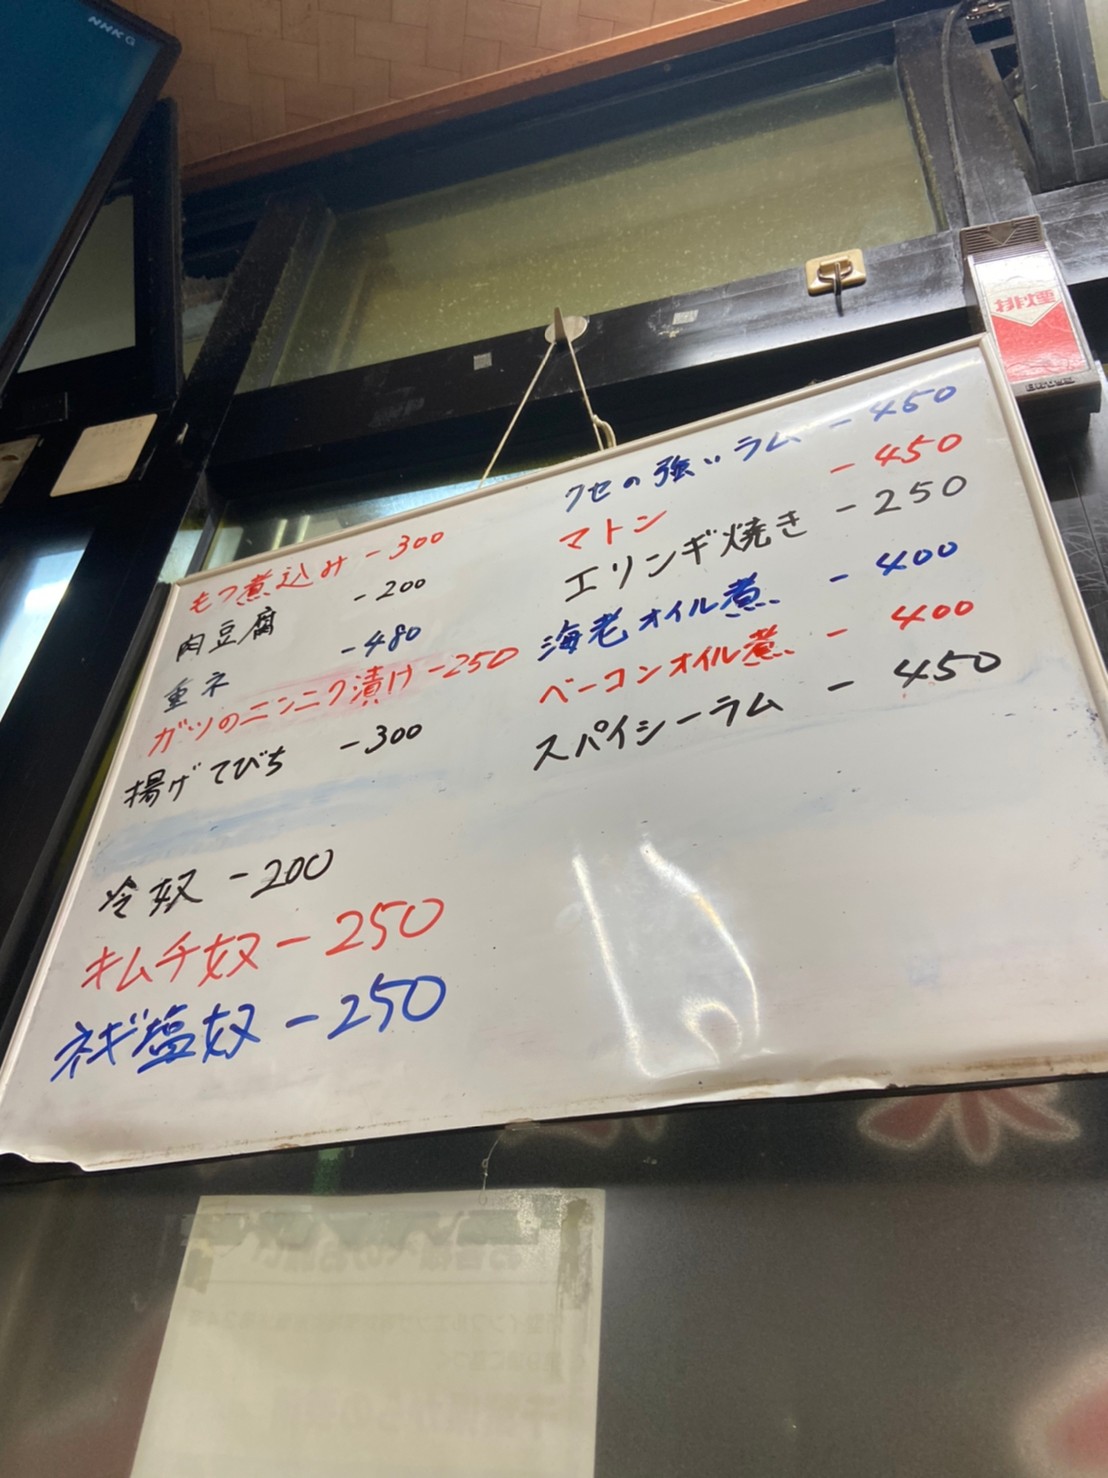 NHK G
排煙
もつ煮込み - 300
肉豆腐 - 200
重ネ - 480
ガツのニンニク漬け - 250
揚げてびち - 300
冷奴 - 200
キムチ奴 - 250
ネギ塩奴 - 250
クセの強いラム - 450
マトン - 450
エリンギ焼き - 250
海老オイル煮 - 400
ベーコンオイル煮 - 400
スパイシーラム - 450